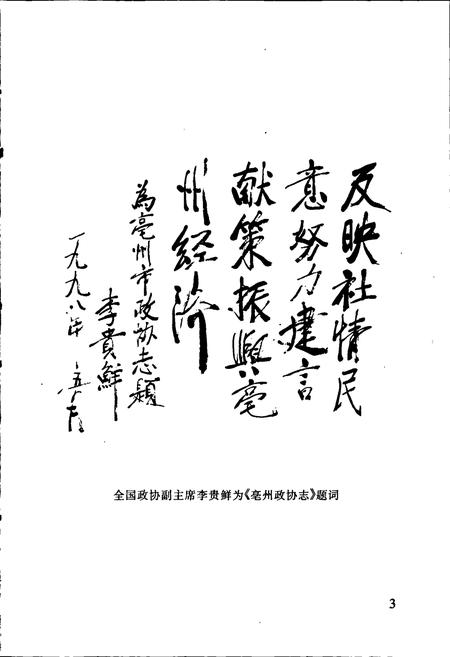 反映社情民
意努力建言
献策振興亳
州经济
為亳州市政协志題
李貴鮮
一九九八年
全国政协副主席李贵鲜为《亳州政协志》题词
3